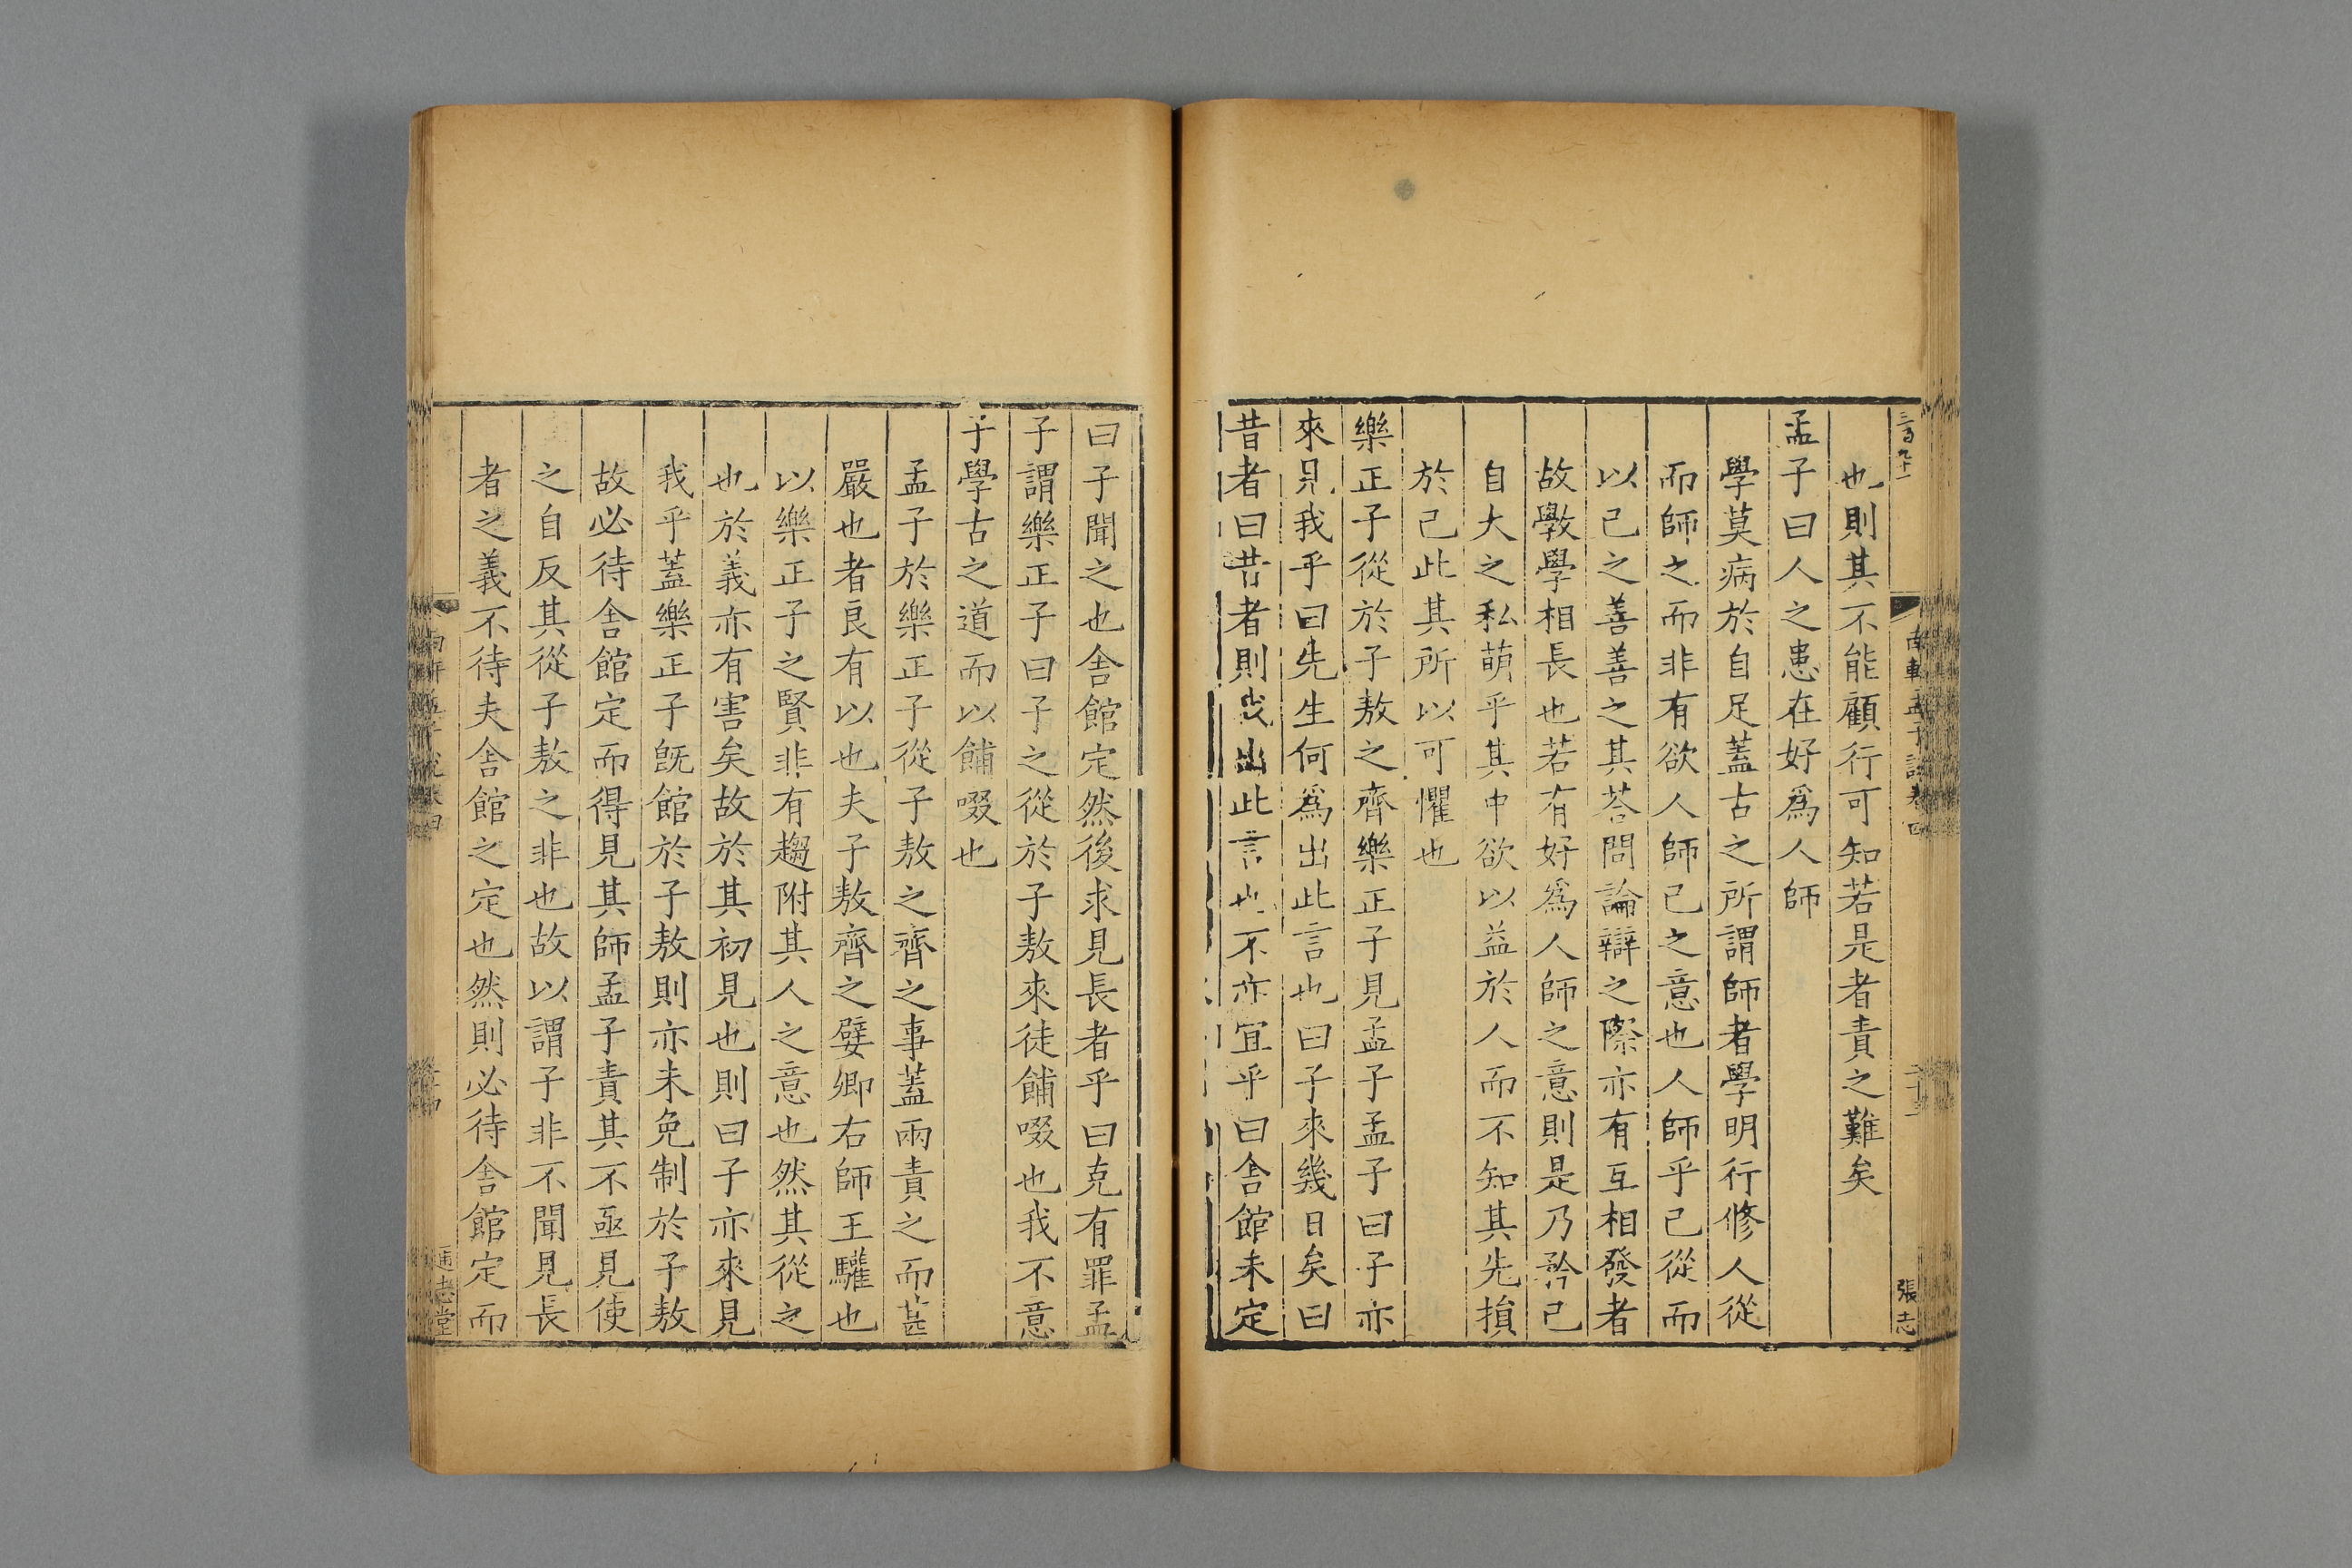 三百九十一
張志
也則其不能顧行可知若是者責之難矣
孟子曰人之患在好爲人師
學莫病於自足蓋古之所謂師者學明行修人從
而師之而非有欲人師己之意也人師乎己從而
以己之善善之其荅問論辯之際亦有互相發者
故斆學相長也若有好爲人師之意則是乃矜己
自大之私萌乎其中欲以益於人而不知其先損
於己此其所以可懼也
樂正子從於子敖之齊樂正子見孟子孟子曰子亦
來見我乎曰先生何爲出此言也曰子來幾日矣曰
昔者曰昔者則我出此言也不亦宜乎曰舍館未定
曰子聞之也舍館定然後求見長者乎曰克有罪孟
子謂樂正子曰子之從於子敖來徒餔啜也我不意
子學古之道而以餔啜也
孟子於樂正子從子敖之齊之事蓋兩責之而甚
嚴也者良有以也夫子敖齊之嬖卿右師王驩也
以樂正子之賢非有趨附其人之意也然其從之
也於義亦有害矣故於其初見也則曰子亦來見
我乎蓋樂正子旣館於子敖則亦未免制於子敖
故必待舍館定而得見其師孟子責其不亟見使
之自反其從子敖之非也故以謂子非不聞見長
者之義不待夫舍館之定也然則必待舍館定而
通志堂